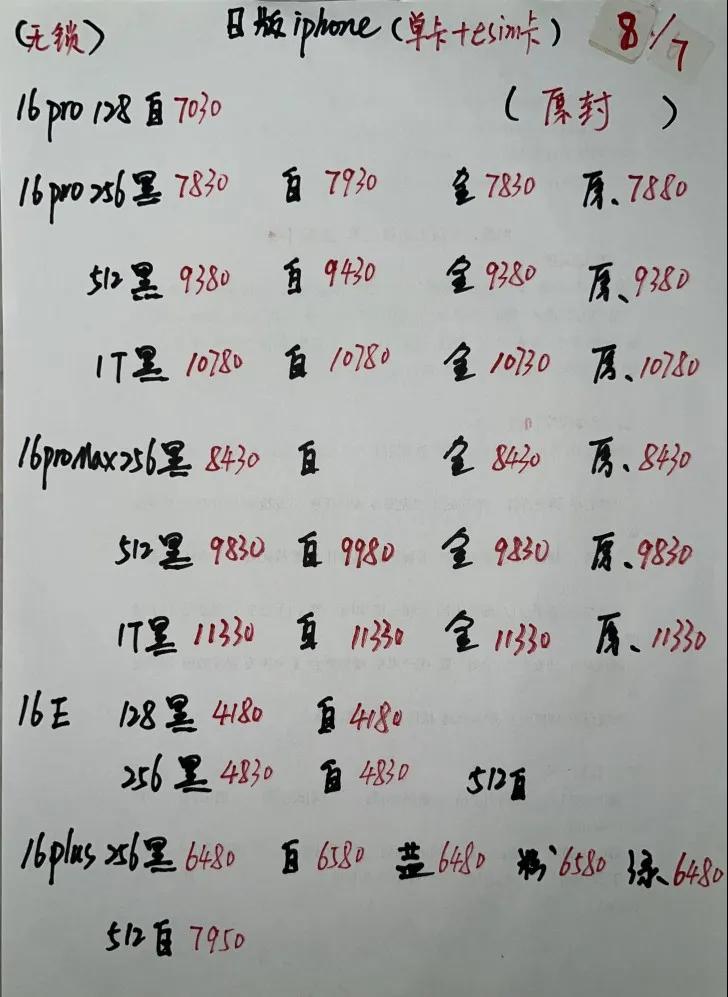 (无锁) 日版iphone(单卡+esim卡) 8/7
16pro 128 白 7030 (原封)
16pro 256 黑 7830 白 7930 金 7830 原、7880
512 黑 9380 白 9430 金 9380 原、9380
1T 黑 10780 白 10780 金 10730 原、10780
16proMax 256 黑 8430 白 金 8430 原、8430
512 黑 9830 白 9980 金 9830 原、9830
1T 黑 11330 白 11330 金 11330 原、11330
16E 128 黑 4180 白 4180
256 黑 4830 白 4830 512 白
16plus 256 黑 6480 白 6580 蓝 6480 粉 6580 绿、6480
512 白 7950